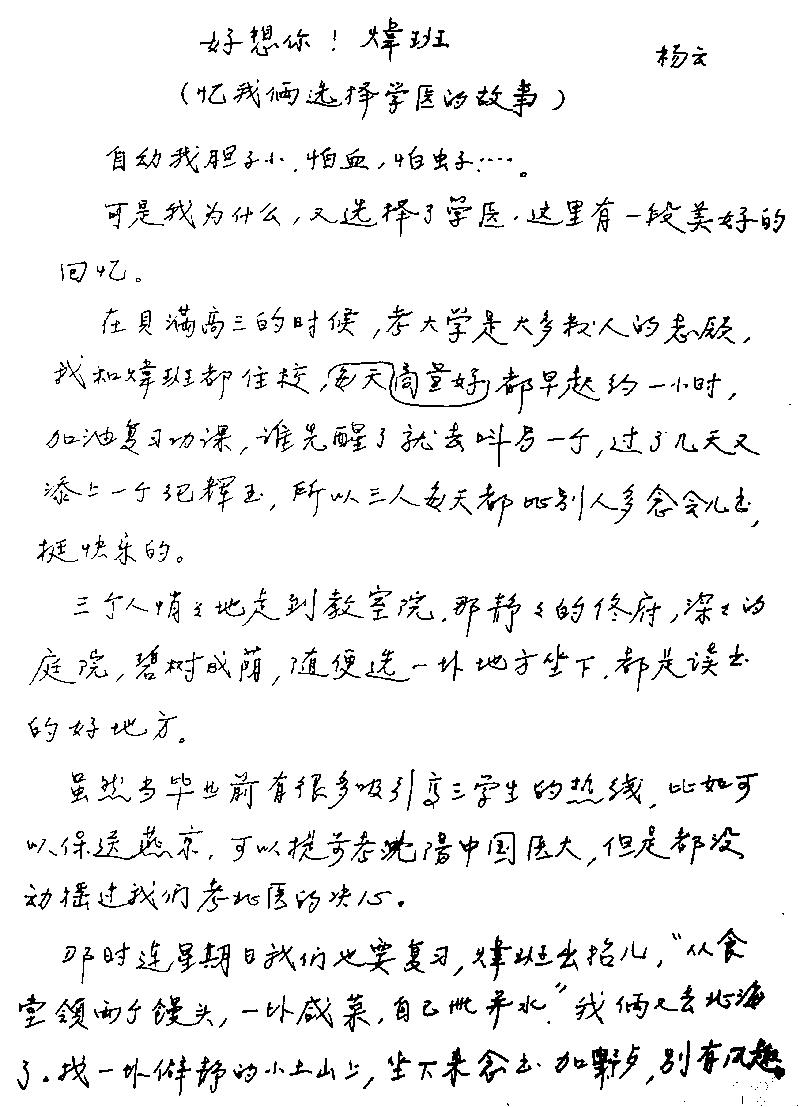 好想你！炜班
杨云
（忆我俩选择学医的故事）
自幼我胆子小，怕血，怕虫子……。
可是我为什么，又选择了学医，这里有一段美好的
回忆。
在贝满高三的时候，考大学是大多数人的志愿，
我和炜班都住校，每天商量好都早起约一小时，
加油复习功课，谁先醒了就去叫另一个，过了几天又
添上一个纪辉玉，所以三人每天都比别人多念会儿书，
挺快乐的。
三个人悄々地走到教室院，那静々的佟府，深々的
庭院，碧树成荫，随便选一块地方坐下，都是读书
的好地方。
虽然当毕业前有很多吸引高三学生的热线，比如可
以保送燕京，可以提前考沈陽中国医大，但是都没
动摇过我们考北医的决心。
那时连星期日我们也要复习，炜班出招儿，“从食
堂领两个馒头，一块咸菜，自己带开水”我俩又去北海
了。找一块僻静的小土山上，坐下来念书加野点，别有风趣